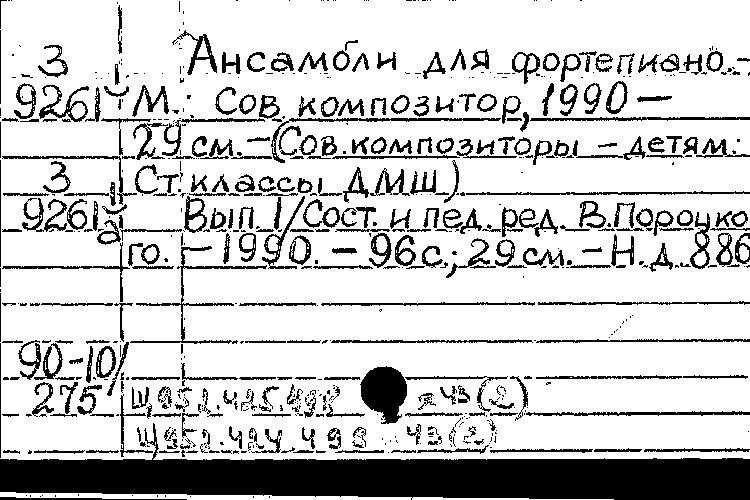 З Ансамбли для фортепиано.-
9261 М.: Сов композитор, 1990 —
29 см. — (Сов. композиторы – детям:
З Ст. классы ДМШ)
9261 Вып. 1/Сост. и пед. ред. В. Пороцко
2 го. — 1990. — 96 с.; 29 см. — Н. д. 886
90-10/
275 Щ952.425.498 я43(2)
Щ952.424.498 43(2)